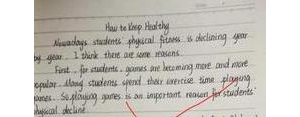 How to Keep Healthy
Nowadays students' physical fitness is declining year
by year. I think there are some reasons.
First, for students, games are becoming more and more
opular. Many students spend their exercise time playing
games. So playing games is an important reason for students'
physical decline.